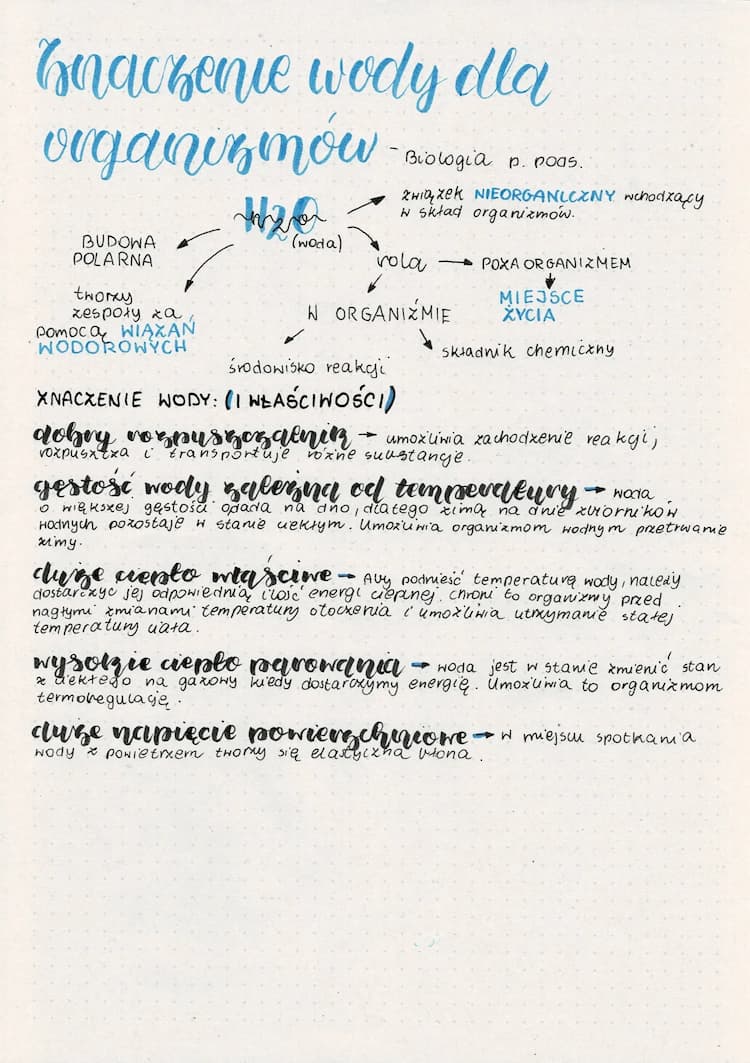 Znaczenie wody dla
organizmów - Biologia p. pods.
H2O
(woda)
związek NIEORGANICZNY wchodzący
w skład organizmów.
BUDOWA
POLARNA
rola → POZA ORGANIZMEM
MIEJSCE
ŻYCIA
tworzy
zespoły za
pomocą WIĄZAŃ
WODOROWYCH
W ORGANIŹMIE
środowisko reakcji
składnik chemiczny
ZNACZENIE WODY: (I WŁAŚCIWOŚCI)
dobry rozpuszczalnik → umożliwia zachodzenie reakcji,
rozpuszcza i transportuje różne substancje.
gęstość wody zależna od temperatury → woda
o większej gęstości opada na dno, dlatego zimą na dnie zbiorników
wodnych pozostaje w stanie ciekłym. Umożliwia organizmom wodnym przetrwanie
zimy.
duże ciepło właściwe → Aby podnieść temperaturę wody, należy
dostarczyć jej odpowiednią ilość energi cieplnej. chroni to organizmy przed
nagłymi zmianami temperatury otoczenia i umożliwia utrzymanie stałej
temperatury ciała.
wysokie ciepło parowania → woda jest w stanie zmienić stan
z ciekłego na gazowy kiedy dostarczymy energię. Umożliwia to organizmom
termoregulację.
duże napięcie powierzchniowe → w miejscu spotkania
wody z powietrzem tworzy się elastyczna błona.